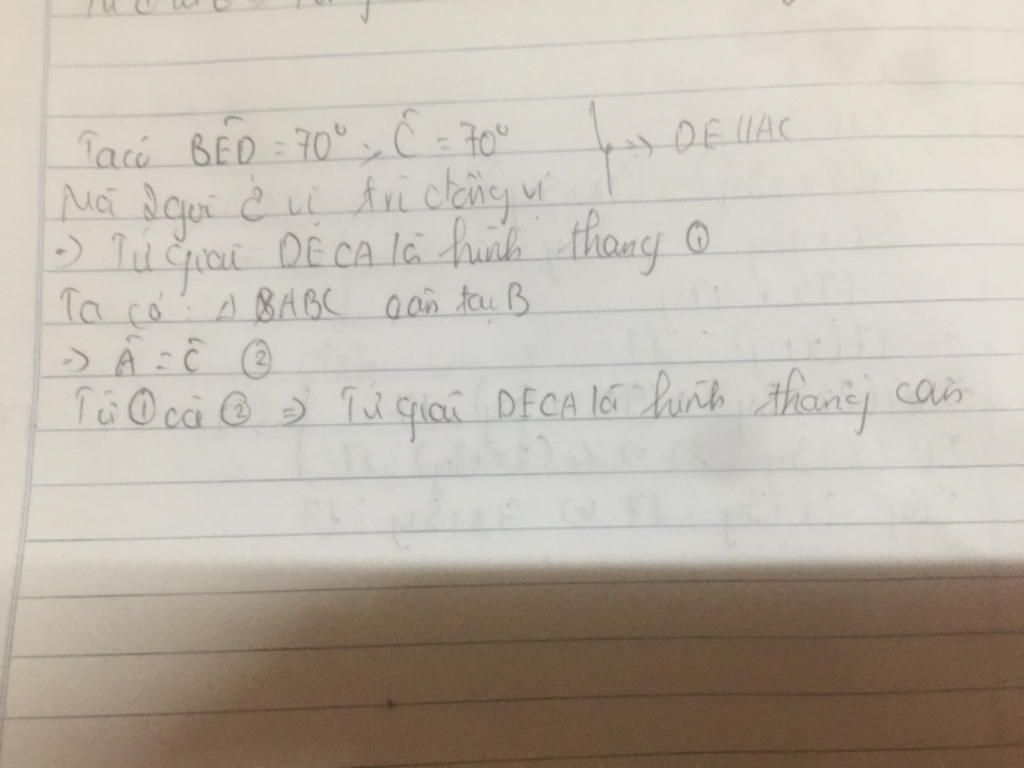 Ta có BÊD = 70° , Ĉ = 70° } => DE // AC
Mà 2 góc ở vị trí đồng vị
=> Tứ giác DECA là hình thang ①
Ta có: Δ ABC cân tại B
=> Â = Ĉ ②
Từ ① và ② => Tứ giác DECA là hình thang cân